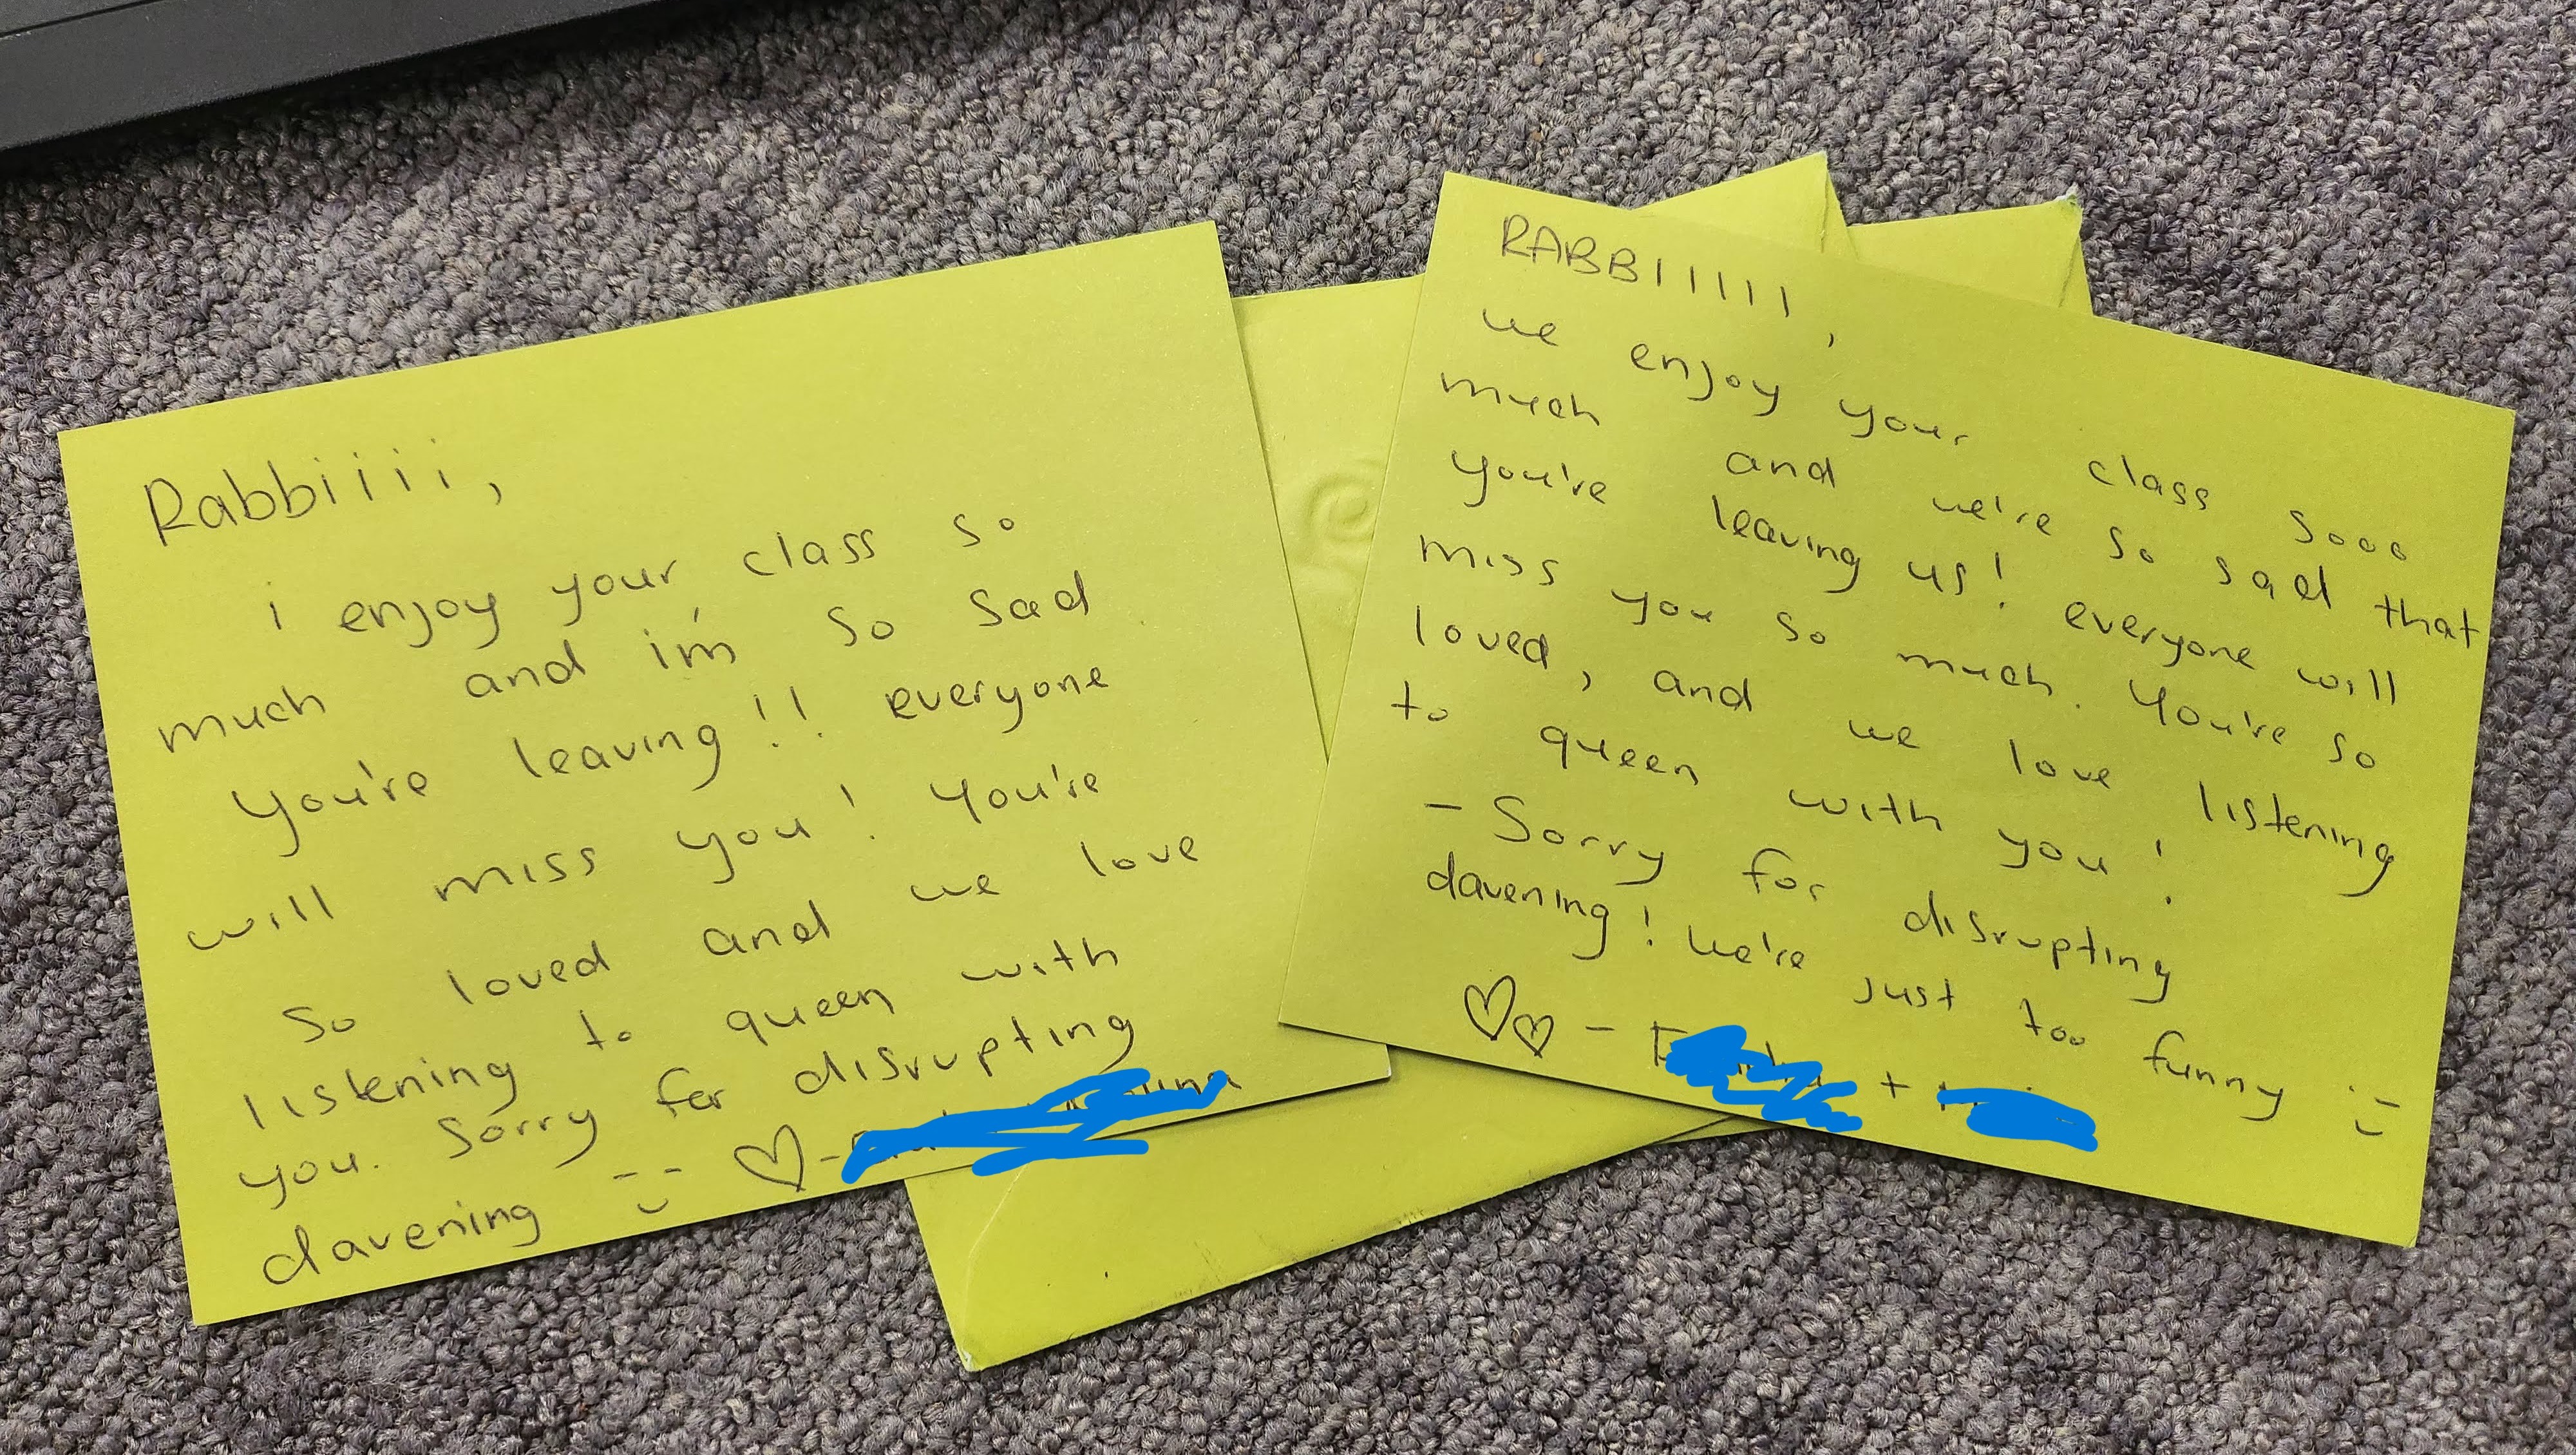 Rabbiiii,
i enjoy your class so
much and i'm so sad
you're leaving!! everyone
will miss you! You're
so loved and we love
listening to queen with
you. Sorry for disrupting
davening :-) ♡-
RABBIIIII,
we enjoy your class sooo
much and we're so sad that
you're leaving us! everyone will
miss you so much. You're so
loved, and we love listening
to queen with you!
- Sorry for disrupting
davening! We're just too funny :-)
♡♡ - +